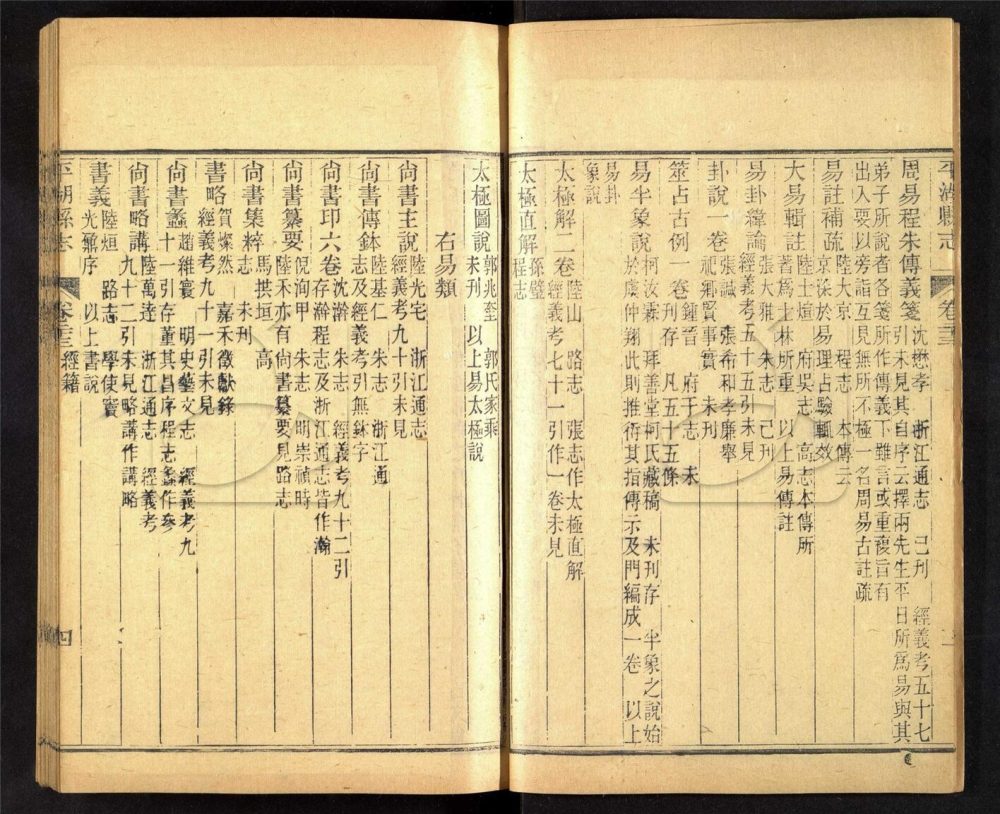 平湖縣志 卷二十三
周易程朱傳義箋 沈懋孝 浙江通志 已刊 經義考五十七
引未見其自序云擇兩先生平日所為易與其
弟子所說者各箋所作傳義下雖言或重複旨有
出入要以旁詣互見無所不極一名周易古註疏
易註補疏 陸大京 程志 本傳云
京深於易理占驗輒效
大易輯註 陸士煊 府吳志 高志本傳所
著為士林所重 以上易傳註
易卦緯論 張大雅 朱志 已刊
經義考五十五引未見
卦說一卷 張諴 張布和孝廉舉
祀鄉賢事實 未刊
筮占古例一卷 鍾晉 府于志 未
刊存 凡五十五條
易半象說 柯汝霖 拜善堂柯氏藏稿 未刊存 半象之說始
於虞仲翔此則推衍其指傳示及門編成一卷 以上
易卦
象說
太極解二卷 陸山 路志 張志作太極直解
經義考七十一引作一卷未見
太極直解 孫璧
程志
太極圖說 郭兆奎 郭氏家乘
未刊 以上易太極說
右易類
尚書主說 陸光宅 浙江通志
經義考九十引未見
尚書傳鉢 陸基仁 朱志 浙江通
志及經義考引無鉢字
尚書印六卷 沈瀚 朱志 經義考九十二引
存瀚程志及浙江通志皆作瀚
尚書纂要 倪洵甲 朱志 明崇禎時
陸朩亦有尚書纂要見路志
尚書集粹 馬拱垣 高
志 未刊
書略 賀燦然 嘉禾徵獻錄
經義考九十一引未見
尚書蠡 趙維寰 明史藝文志 經義考九
十一引存董其昌序程志蠡作參
尚書略講 陸萬達 浙江通志 經義考
九十二引未見略講作講略
書義 陸烜 路志 學使竇
光鼐序 以上書說
平湖縣志 卷二十三 經籍 四